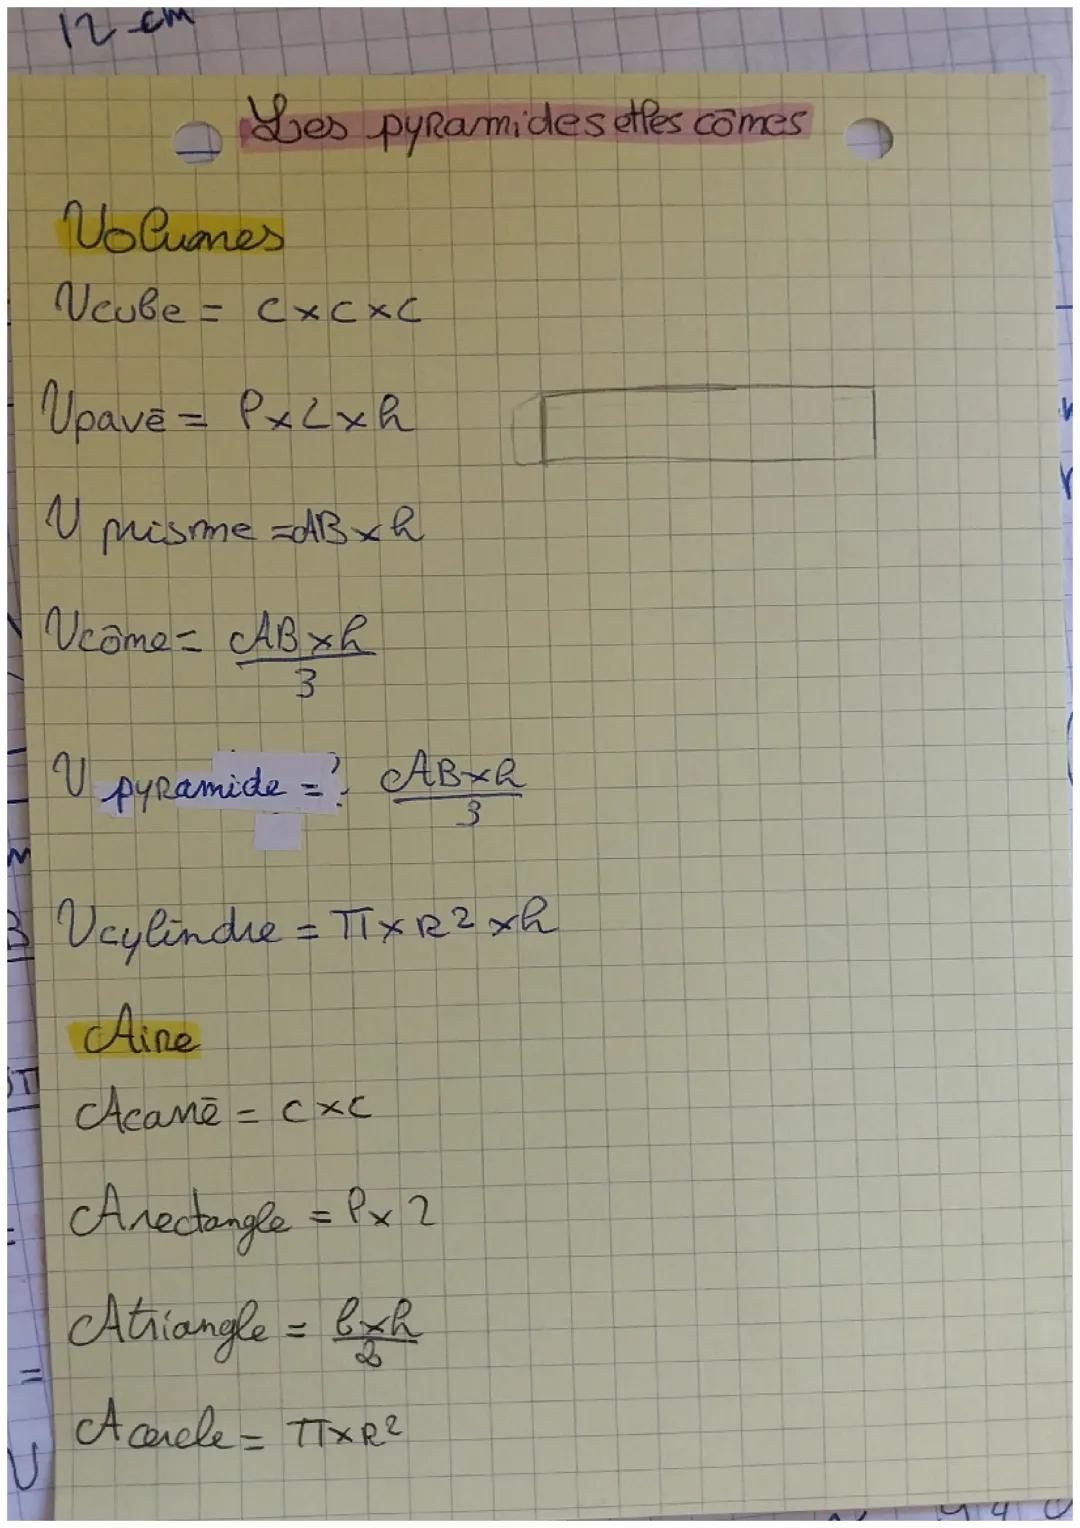 12 cm
Les pyramides et les cônes
Volumes
Vcube = c×c×c
Vpavé = l×L×h
V prisme = AB×h
Vcône = AB×h
3
V pyramide = ? AB×h
3
Vcylindre = π×R²×h
Aire
Acarré = c×c
Arectangle = l×L
Atriangle = b×h
2
Acercle = π×R²